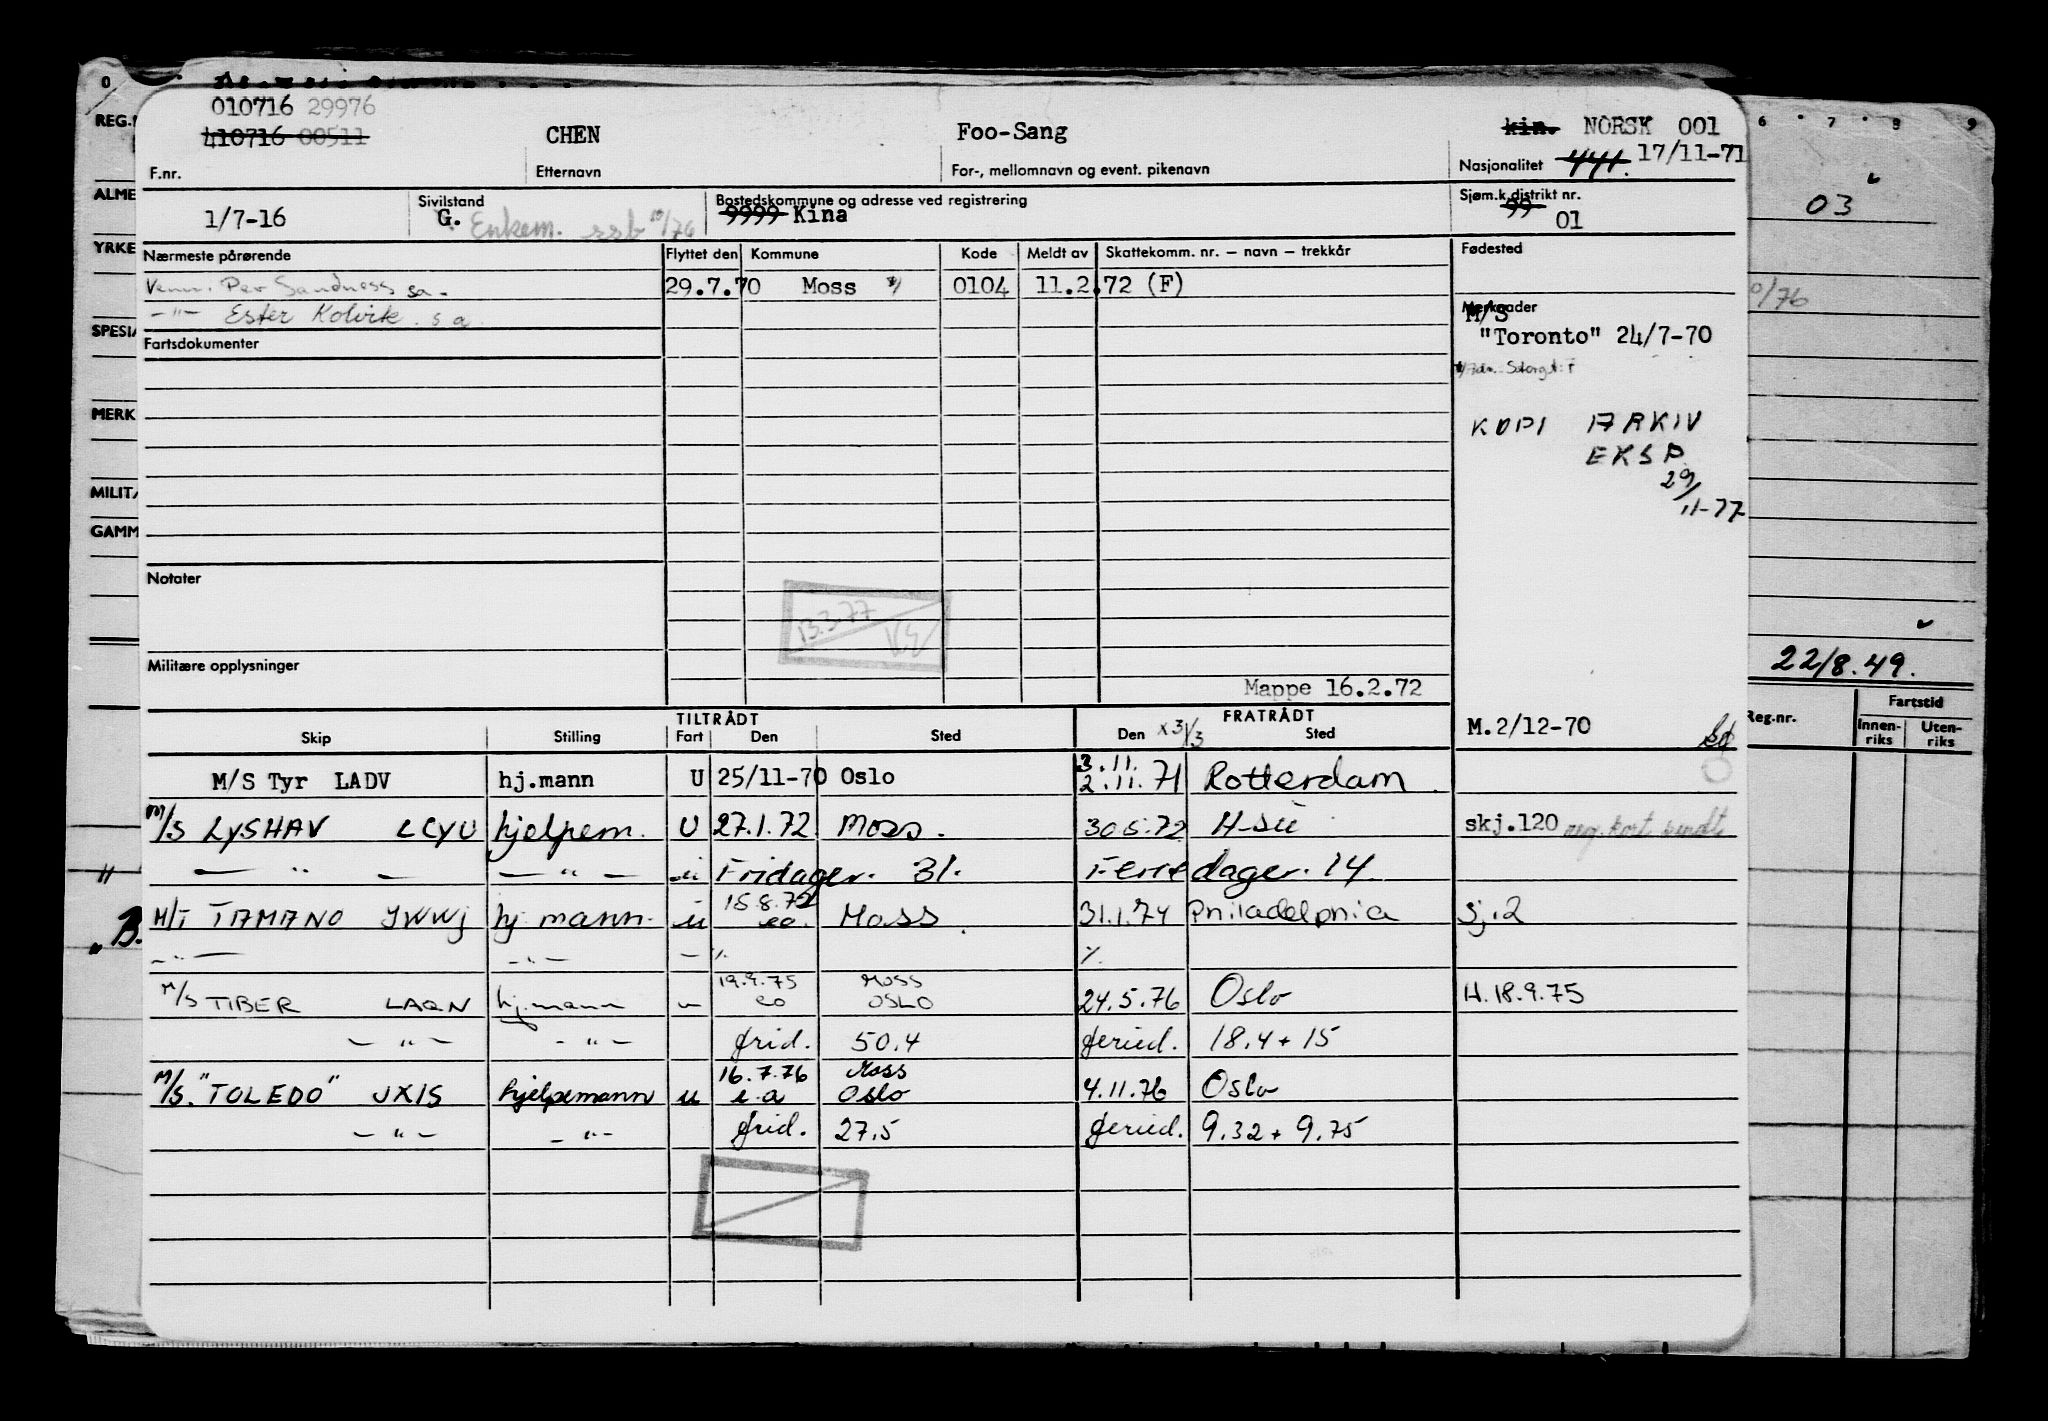 010716 29976
410716 00511 CHEN Foo-Sang kin. NORSK 001
F.nr. Etternavn For-, mellomnavn og event. pikenavn Nasjonalitet 441. 17/11-71
Sivilstand Bostedskommune og adresse ved registrering Sjøm.k.distrikt nr.
1/7-16 G. Enkem. ssb 10/76 9999 Kina 99 01
Nærmeste pårørende Flyttet den Kommune Kode Meldt av Skattekomm. nr. – navn – trekkår Fødested
Venn. Per Sandness sa. 29.7.70 Moss 0104 11.2.72 (F)
–"– Ester Kolvik. s a. Merknader
M/S
"Toronto" 24/7-70
Fartsdokumenter
KOPI ARKIV
EKSP
29/11-77
Notater
13.3.77
Militære opplysninger
Mappe 16.2.72
TILTRÅDT FRATRÅDT M.2/12-70
Skip Stilling Fart Den Sted Den x 31/3 Sted
3.11.
M/S Tyr LADV hj.mann U 25/11-70 Oslo 2.11.71 Rotterdam.
M/S LYSHAV LCYU hjelpem. U 27.1.72. Moss. 30.5.72 H-sü skj.120 reg.kort sendt
— " — — " — u Fridager. 31. Feriedager. 14.
15.8.72
M/T TAMANO JWWJ hj.mann. u ea. Moss. 31.1.74 Philadelphia Sj.2
— " — — " — — % %
19.9.75 Moss
M/S TIBER LAQN hj.mann u eo OSLO 24.5.76 Oslo H.18.9.75
— " — — " — frid. 50.4 feried. 18.4 + 15
16.7.76 Moss
M/S. "TOLEDO" JXIS hjelpemann u e.a Oslo 4.11.76 Oslo
— " — — " — frid. 27.5 feried. 9.32 + 9.75
0
REG.
ALME
YRKE
SPESIA
MERK
MILIT
GAMM
"
"B.
6 7 8 9
03
0/76
22/8.49.
Reg.nr. Fartstid
Innen-riks Uten-riks